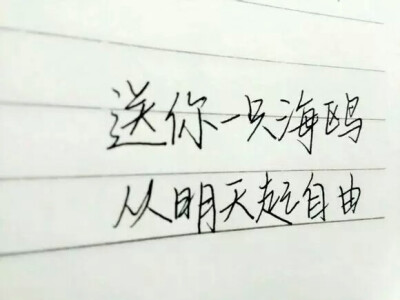 送你一只海鸥
从明天起自由